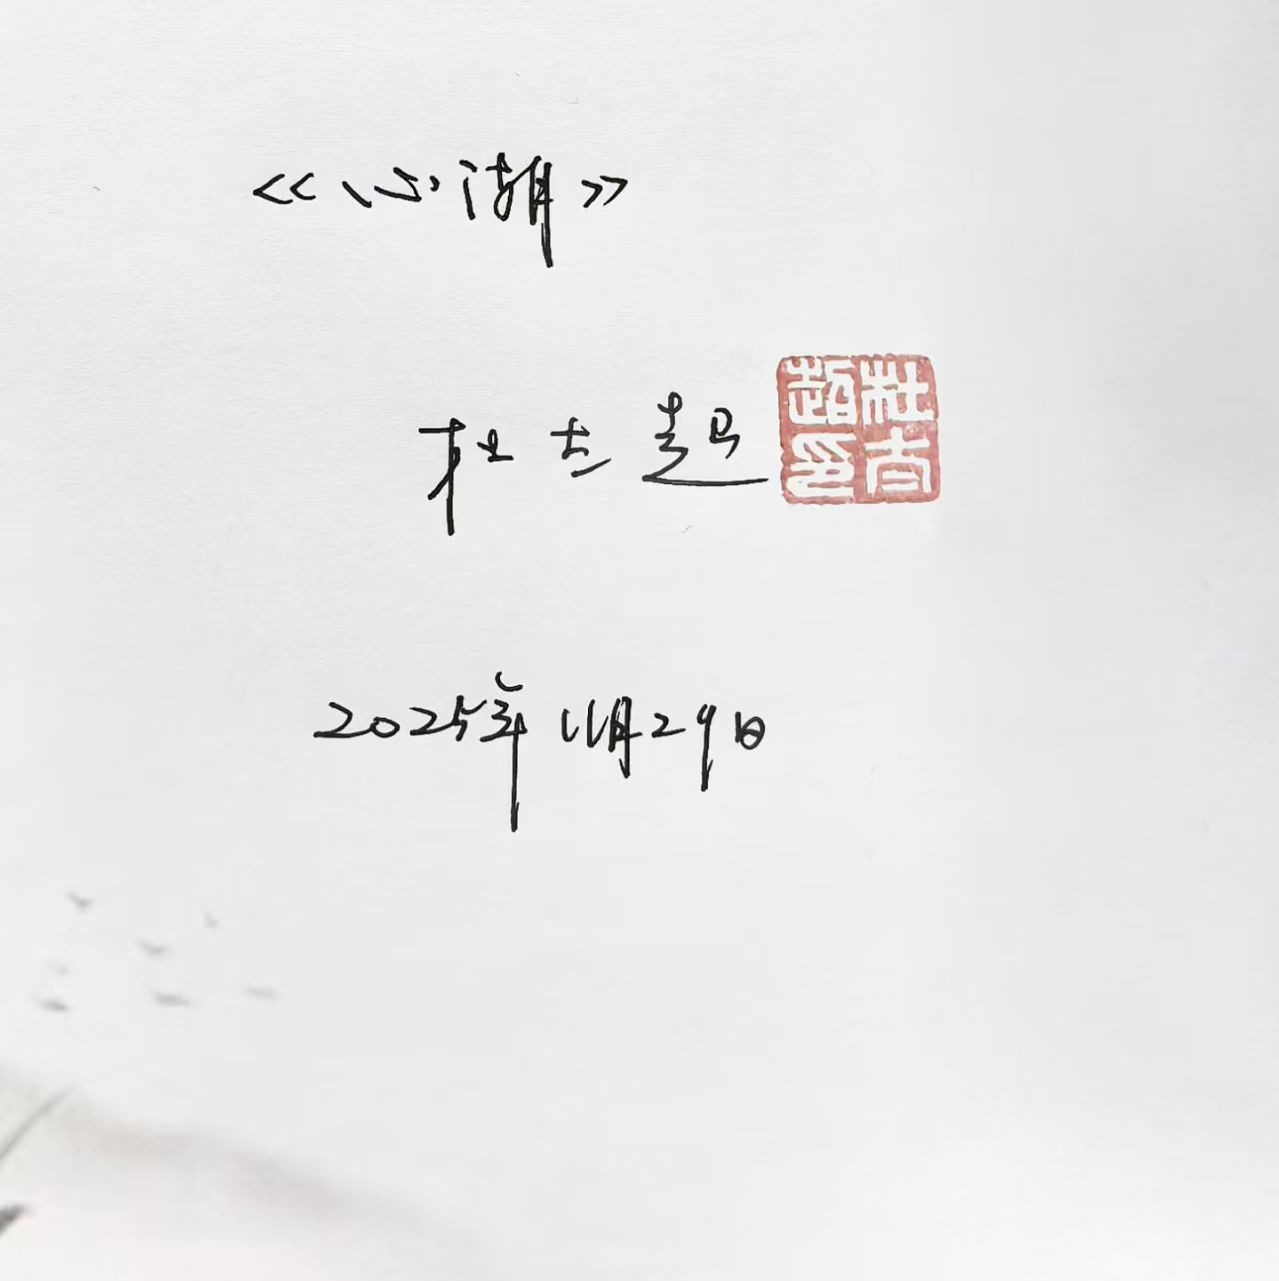 《心湖》
杜 超 杜 超印
2025年11月29日